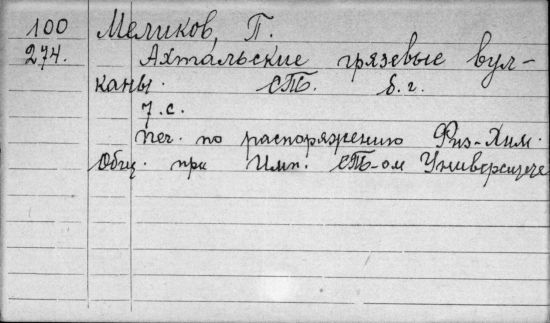 100 Меликов, П.
274. Ахтальские грязевые вул-
каны. СПБ. б.г.
7 с.
Печ. по распоряжению Физ-Хим.
Общ. при Имп. СПБ-ом Университете